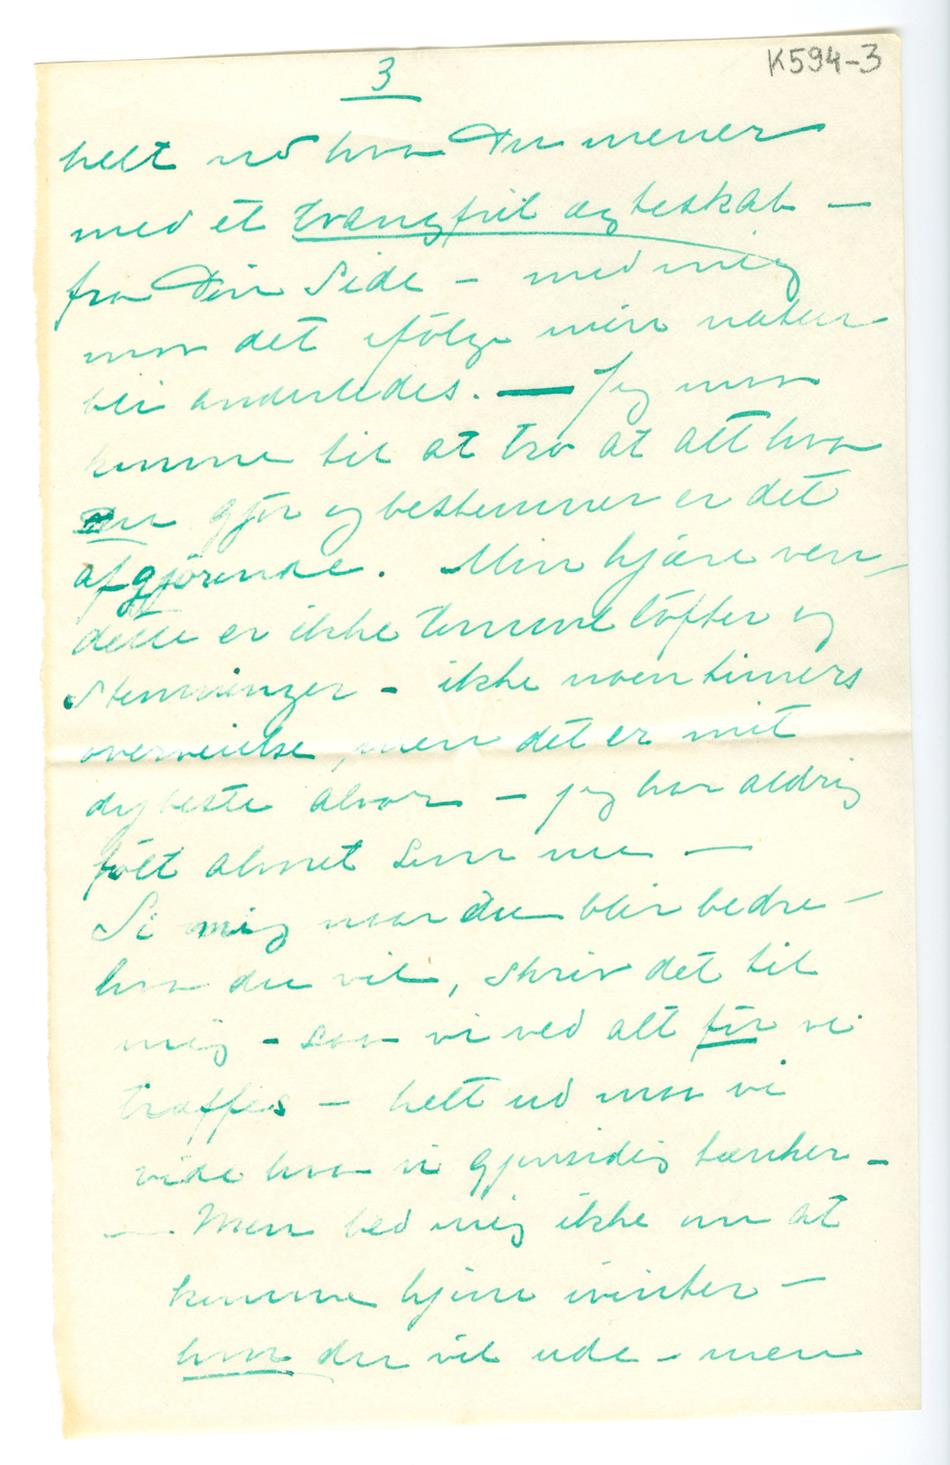 K594-3
3
helt ud hva Du mener
med et tvangfrit ægteskab —
fra Din Side — med mig
maa det ifölge min natur
bli anderledes. — Jeg maa
komme til at tro at alt hva
Du gjör og bestemmer er det
afgjörende. Min kjære ven,
dette er ikke tomme löfter og
Stemninger — ikke noen timers
overveielse, men det er mit
dybeste alvor — jeg har aldrig
fölt alvoret som nu —
Si mig naar du blir bedre —
hva du vil, skriv det til
mig — saa vi ved alt för vi
træffes — helt ud maa vi
vide hva vi gjensidig tænker —
— Men bed mig ikke om at
komme hjem ivinter —
hvor du vil ude — men